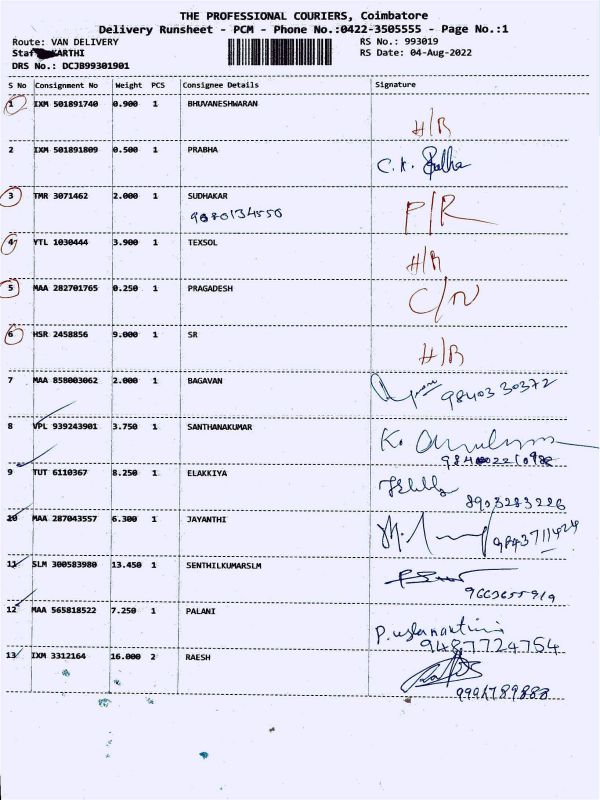 THE PROFESSIONAL COURIERS, Coimbatore
Delivery Runsheet - PCM - Phone No.:0422-3505555 - Page No.:1
Route: VAN DELIVERY
RS No.: 993019
Staf KARTHI
RS Date: 04-Aug-2022
DRS No.: DCJB99301901
S No Consignment No Weight PCS Consignee Details Signature
1 IXM 501891740 0.900 1 BHUVANESHWARAN
H/R
2 IXM 501891809 0.500 1 PRABHA
C.K.
3 TMR 3071462 2.000 1 SUDHAKAR P/R
4 YTL 1030444 3.900 1 TEXSOL
H/R
5 MAA 282701765 0.250 1 PRAGADESH C/N
6 HSR 2458856 9.000 1 SR
H/R
7 MAA 858003062 2.000 1 BAGAVAN
9840330372
8 VPL 939243901 3.750 1 SANTHANAKUMAR
K.
9 TUT 6110367 8.250 1 ELAKKIYA
8903283226
10 MAA 287043557 6.300 1 JAYANTHI
11 SLM 300583980 13.450 1 SENTHILKUMARSLM
9663655919
12 MAA 565818522 7.250 1 PALANI
9487724754
13 IXM 3312164 16.000 2 RAESH